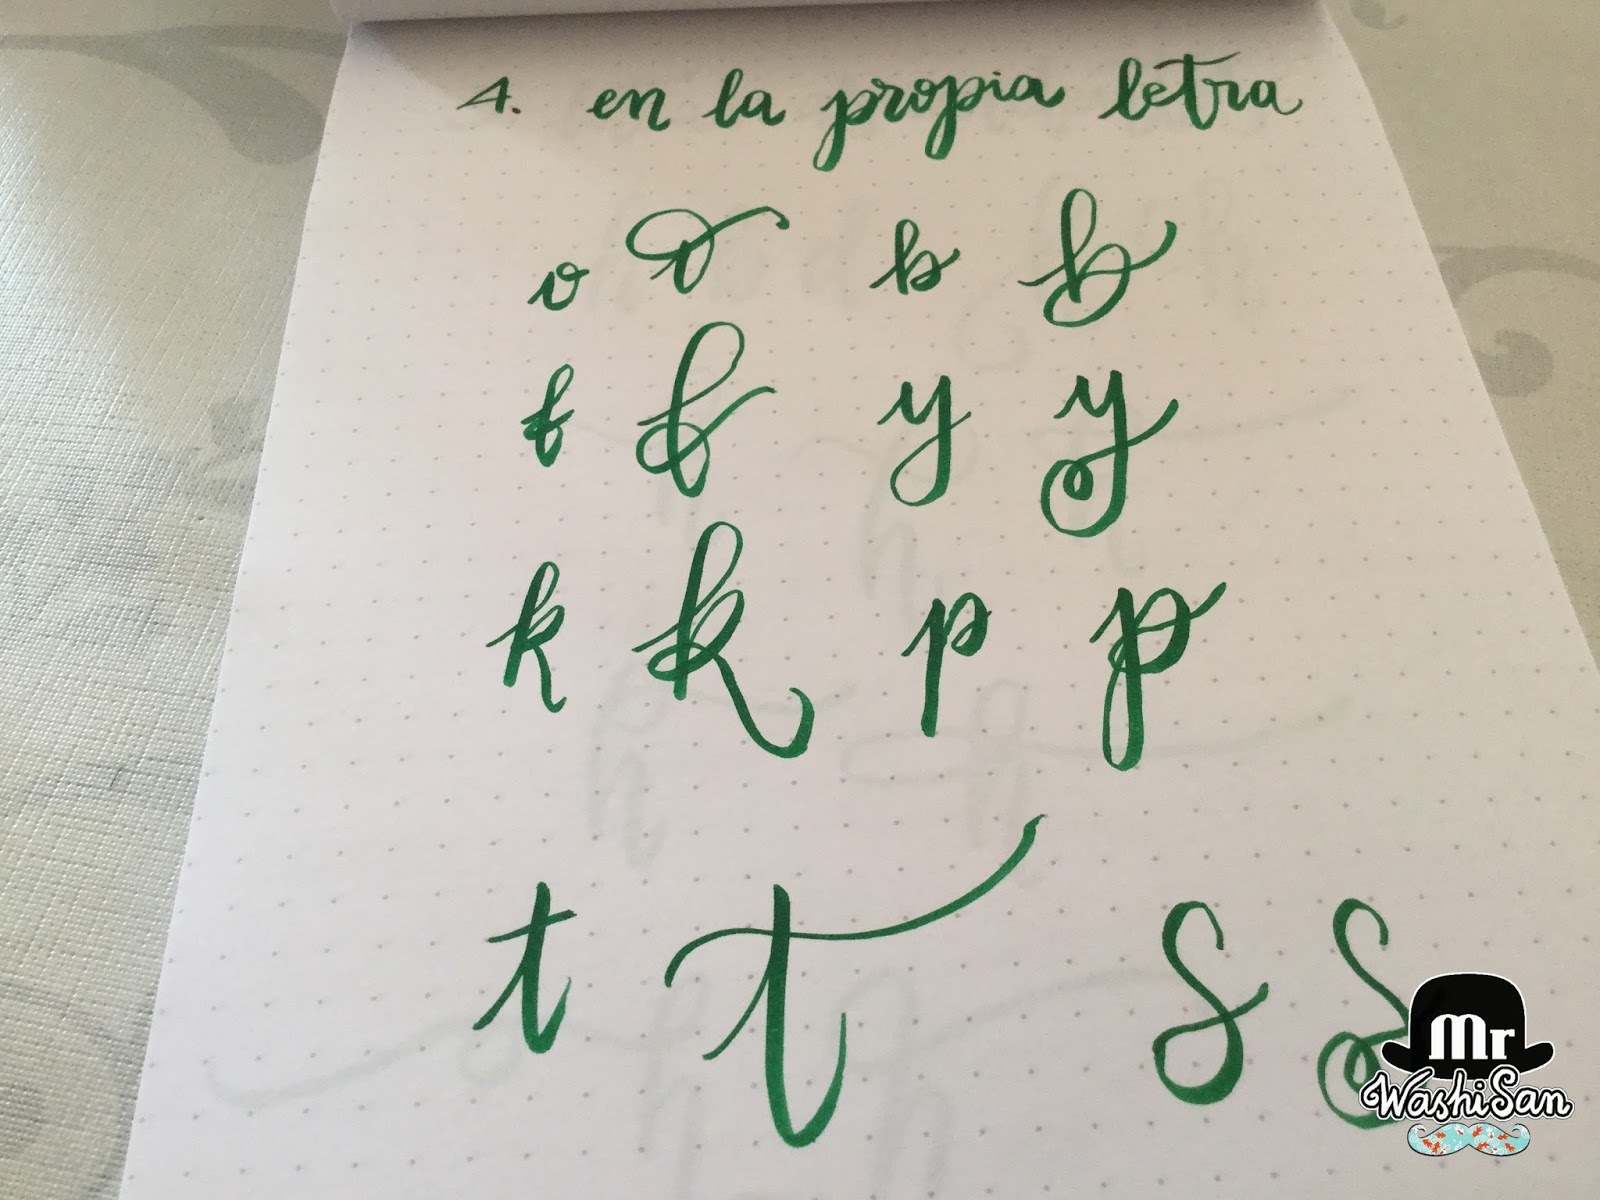 4. en la propia letra
o o b b
f f y y
k k p p
t t s s
Mr
WashiSan